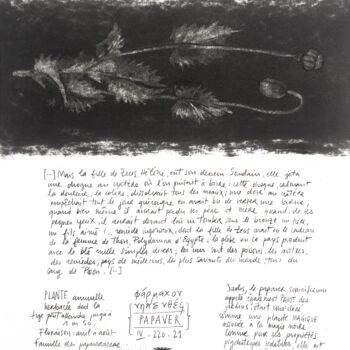 […] Mais la fille de Zeus, Hélène, eut son dessein. Soudain, elle jeta
une drogue au cratère où l'on puisait à boire : cette drogue, calmant
la douleur, la colère, dissolvait tous les maux ; une dose au cratère
empêchait tout le jour quiconque en avait bu de verser une larme,
quand bien même il aurait perdu ses père et mère quand, de ses
propres yeux, il aurait devant lui vu tomber sous le bronze un frère,
un fils aimé !... remède ingénieux, dont la fille de Zeus avait eu le cadeau
de la femme de Thon, Polydamna d'Égypte : la glèbe en ce pays produit
avec le blé mille simples divers ; les uns sont des poisons, les autres,
des remèdes ; pays de médecins, les plus savants du monde, tous du
sang de Pæon. […]
PLANTE annuelle
herbacée dont la
tige peut atteindre jusqu'à
1 m. 50.
Floraison : avril à août
Famille de papaveraceae
φάρμακον
νηπενθές
PAPAVER
IV - 220-21
Jadis, le papaver somniferum
appelé également Pavot des
jardins, était considéré
comme une plante MAGIQUE
associée à la magie noire
connue pour ses propriétés
psychotropes
elle est